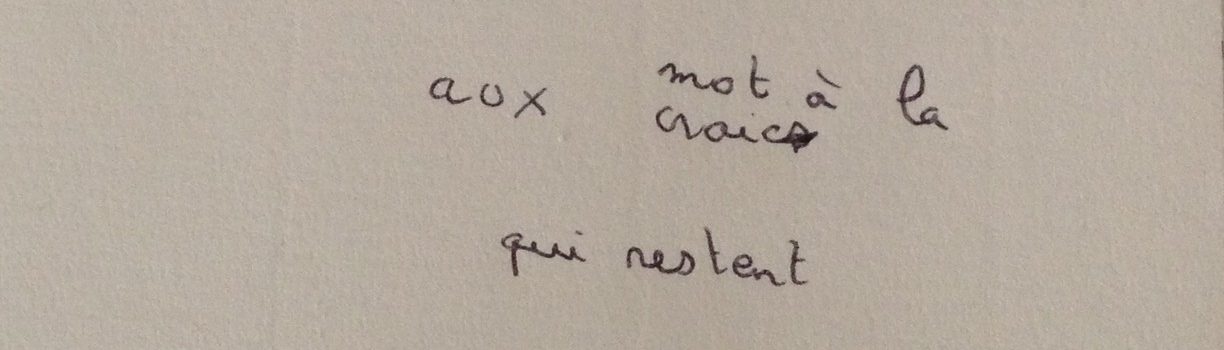 aux mot à la
craie
qui restent